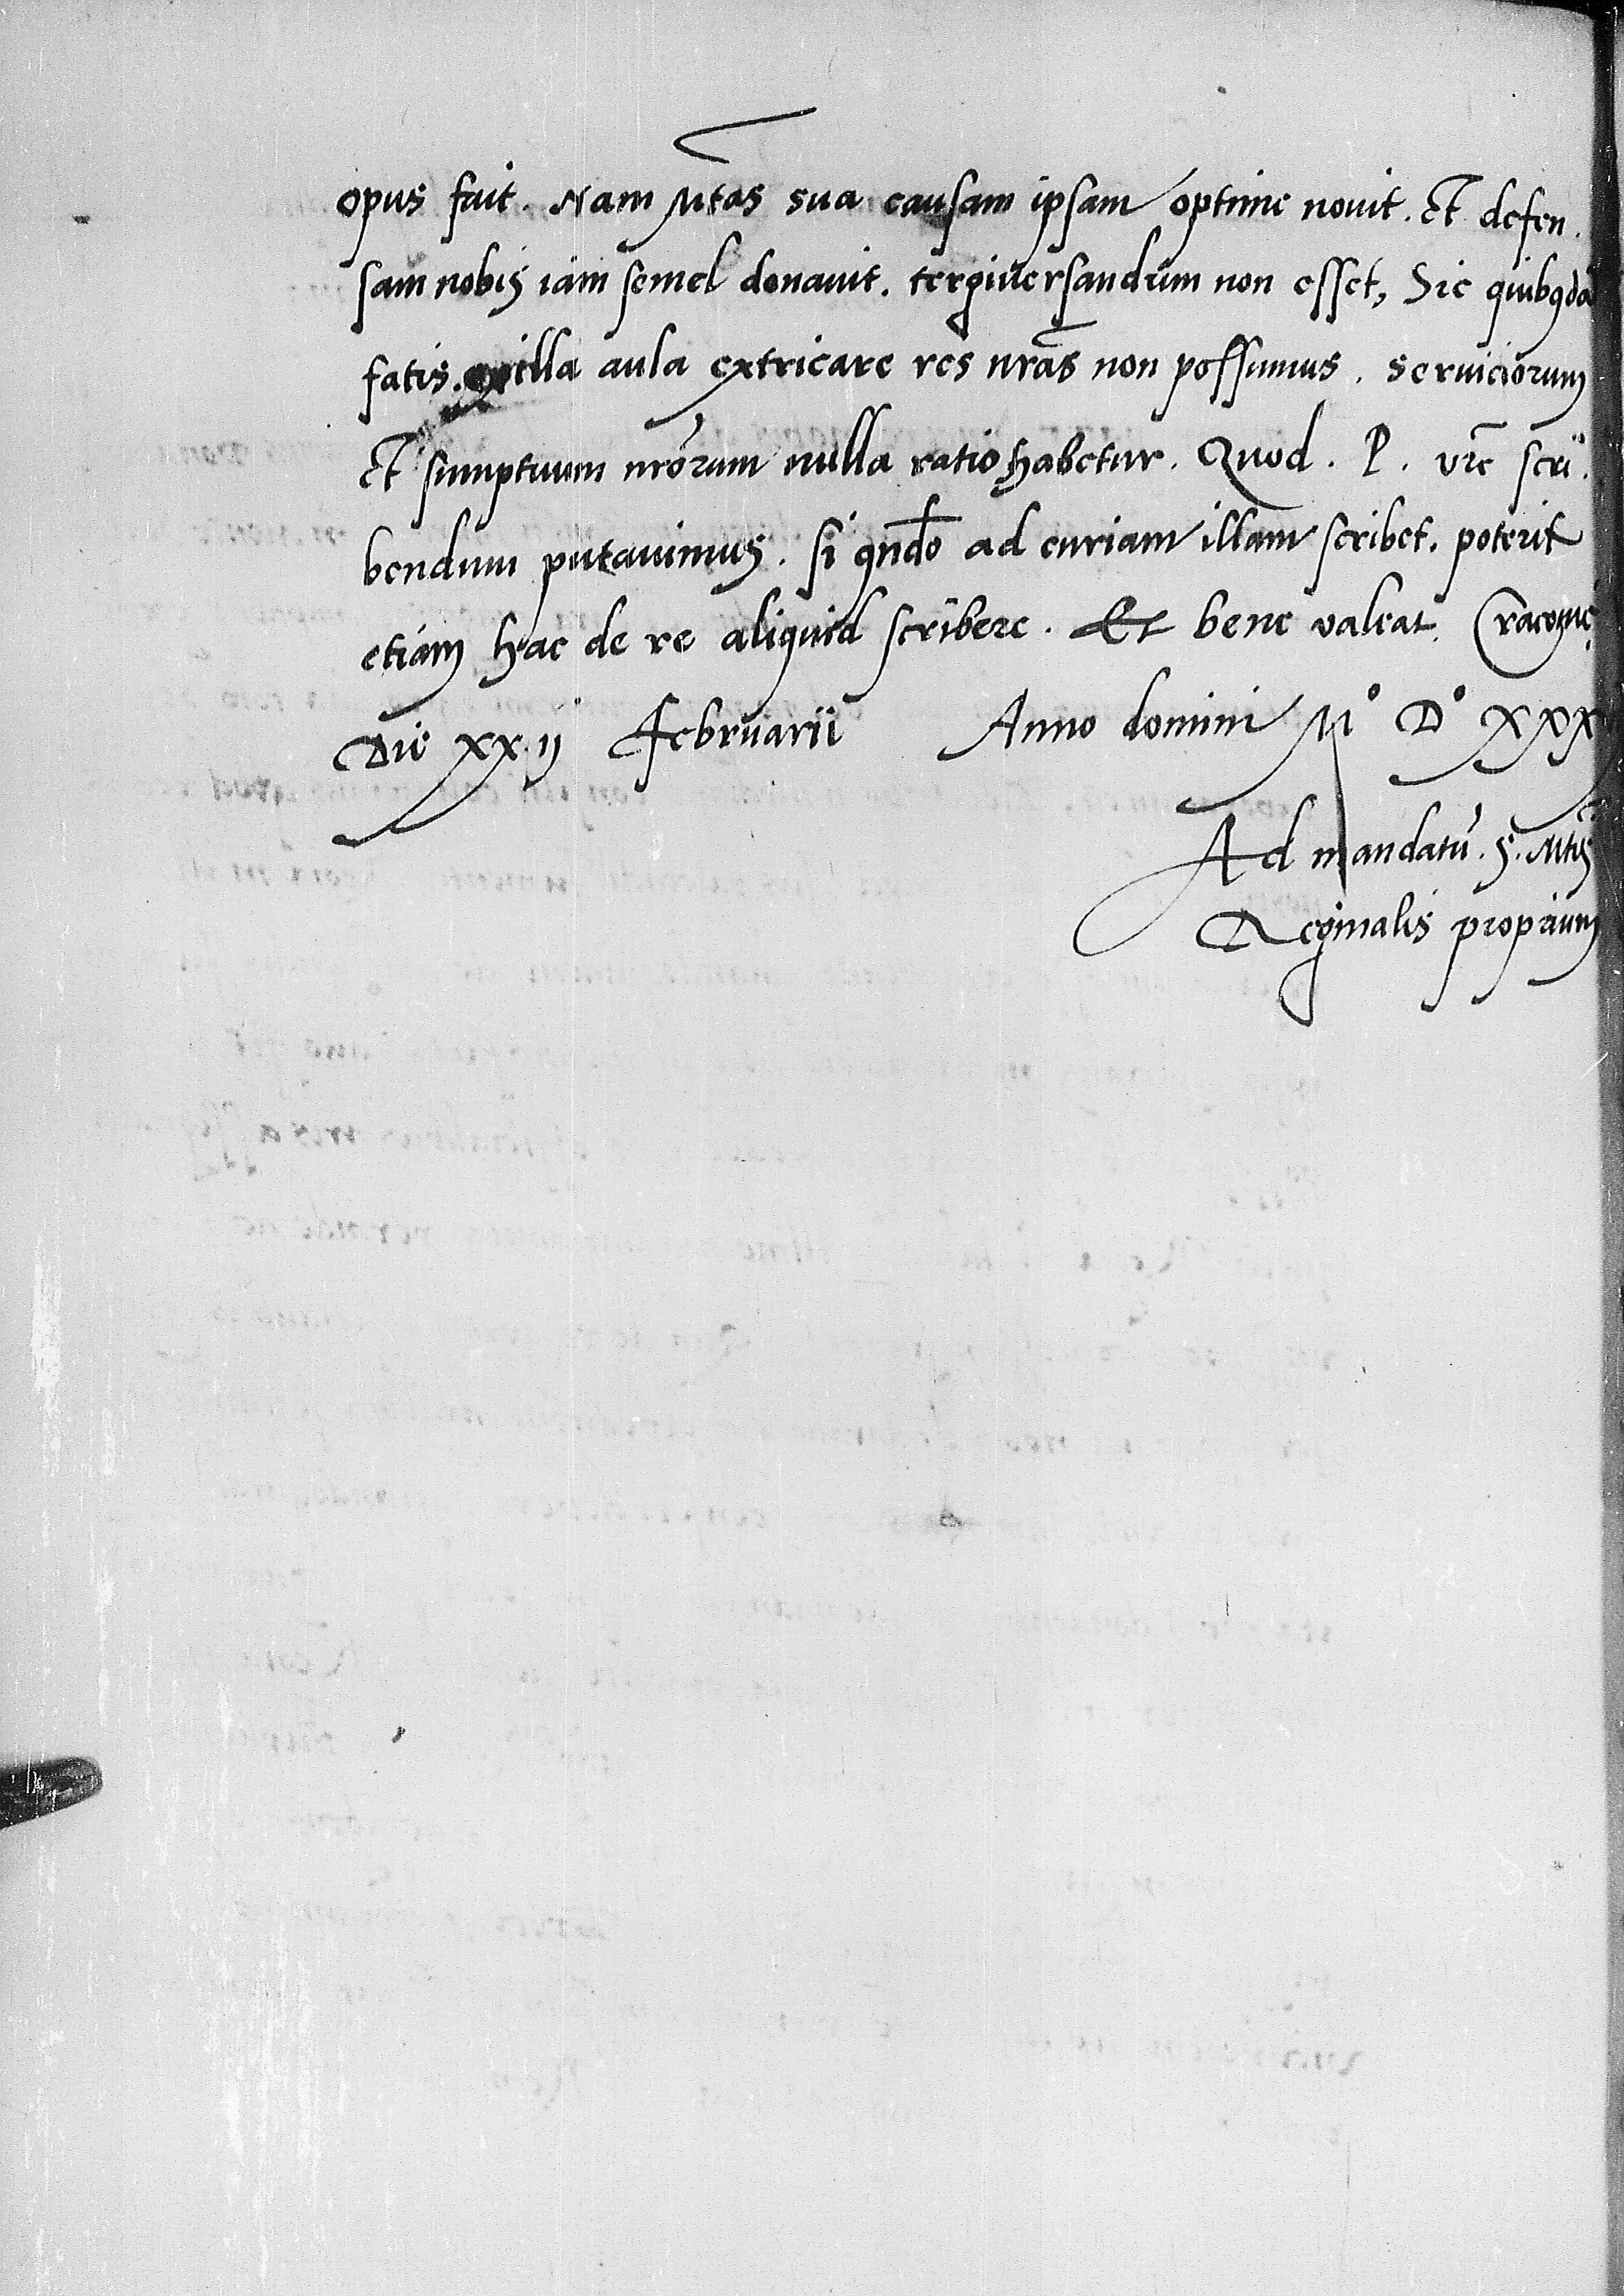 opus fuit. Nam Mtas sua causam ipsam optime nouit. Et defen.
sam nobis iam semel donauit. tergiuersandum non esset, Sic quibusdā
fatis. ex illa aula extricare res nrās non possumus. seruiciorum
Et sumptuum nrōrum nulla ratio habetur. Quod. P. vrē scri.
bendum putauimus. si qndo ad curiam illam scribet. poterit
etiam hac de re aliquid scribere. Et bene valeat. Cracouię
Die XX ij Februarii Anno domini M° D° XXX
Ad mandatū. S. Mtis
Reginalis proprium